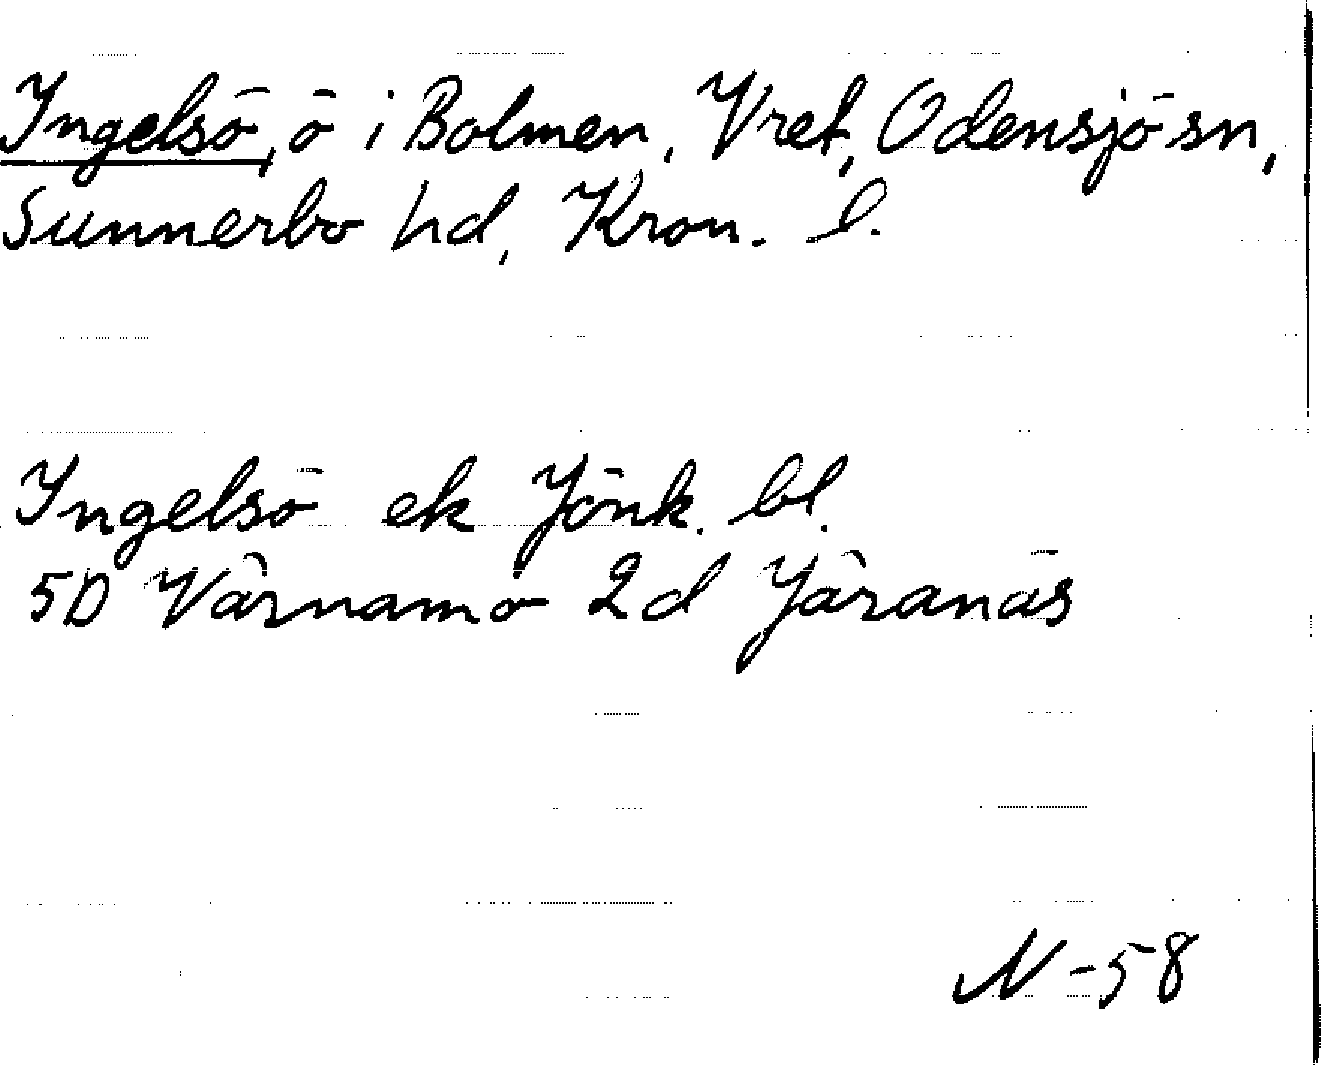 Ingelsö, ö i Bolmen, Vret, Odensjö sn,
Sunnerbo hd, Kron. l.
Ingelsö ek Jönk. bl.
5D Värnamo 2d Järanäs
N -58